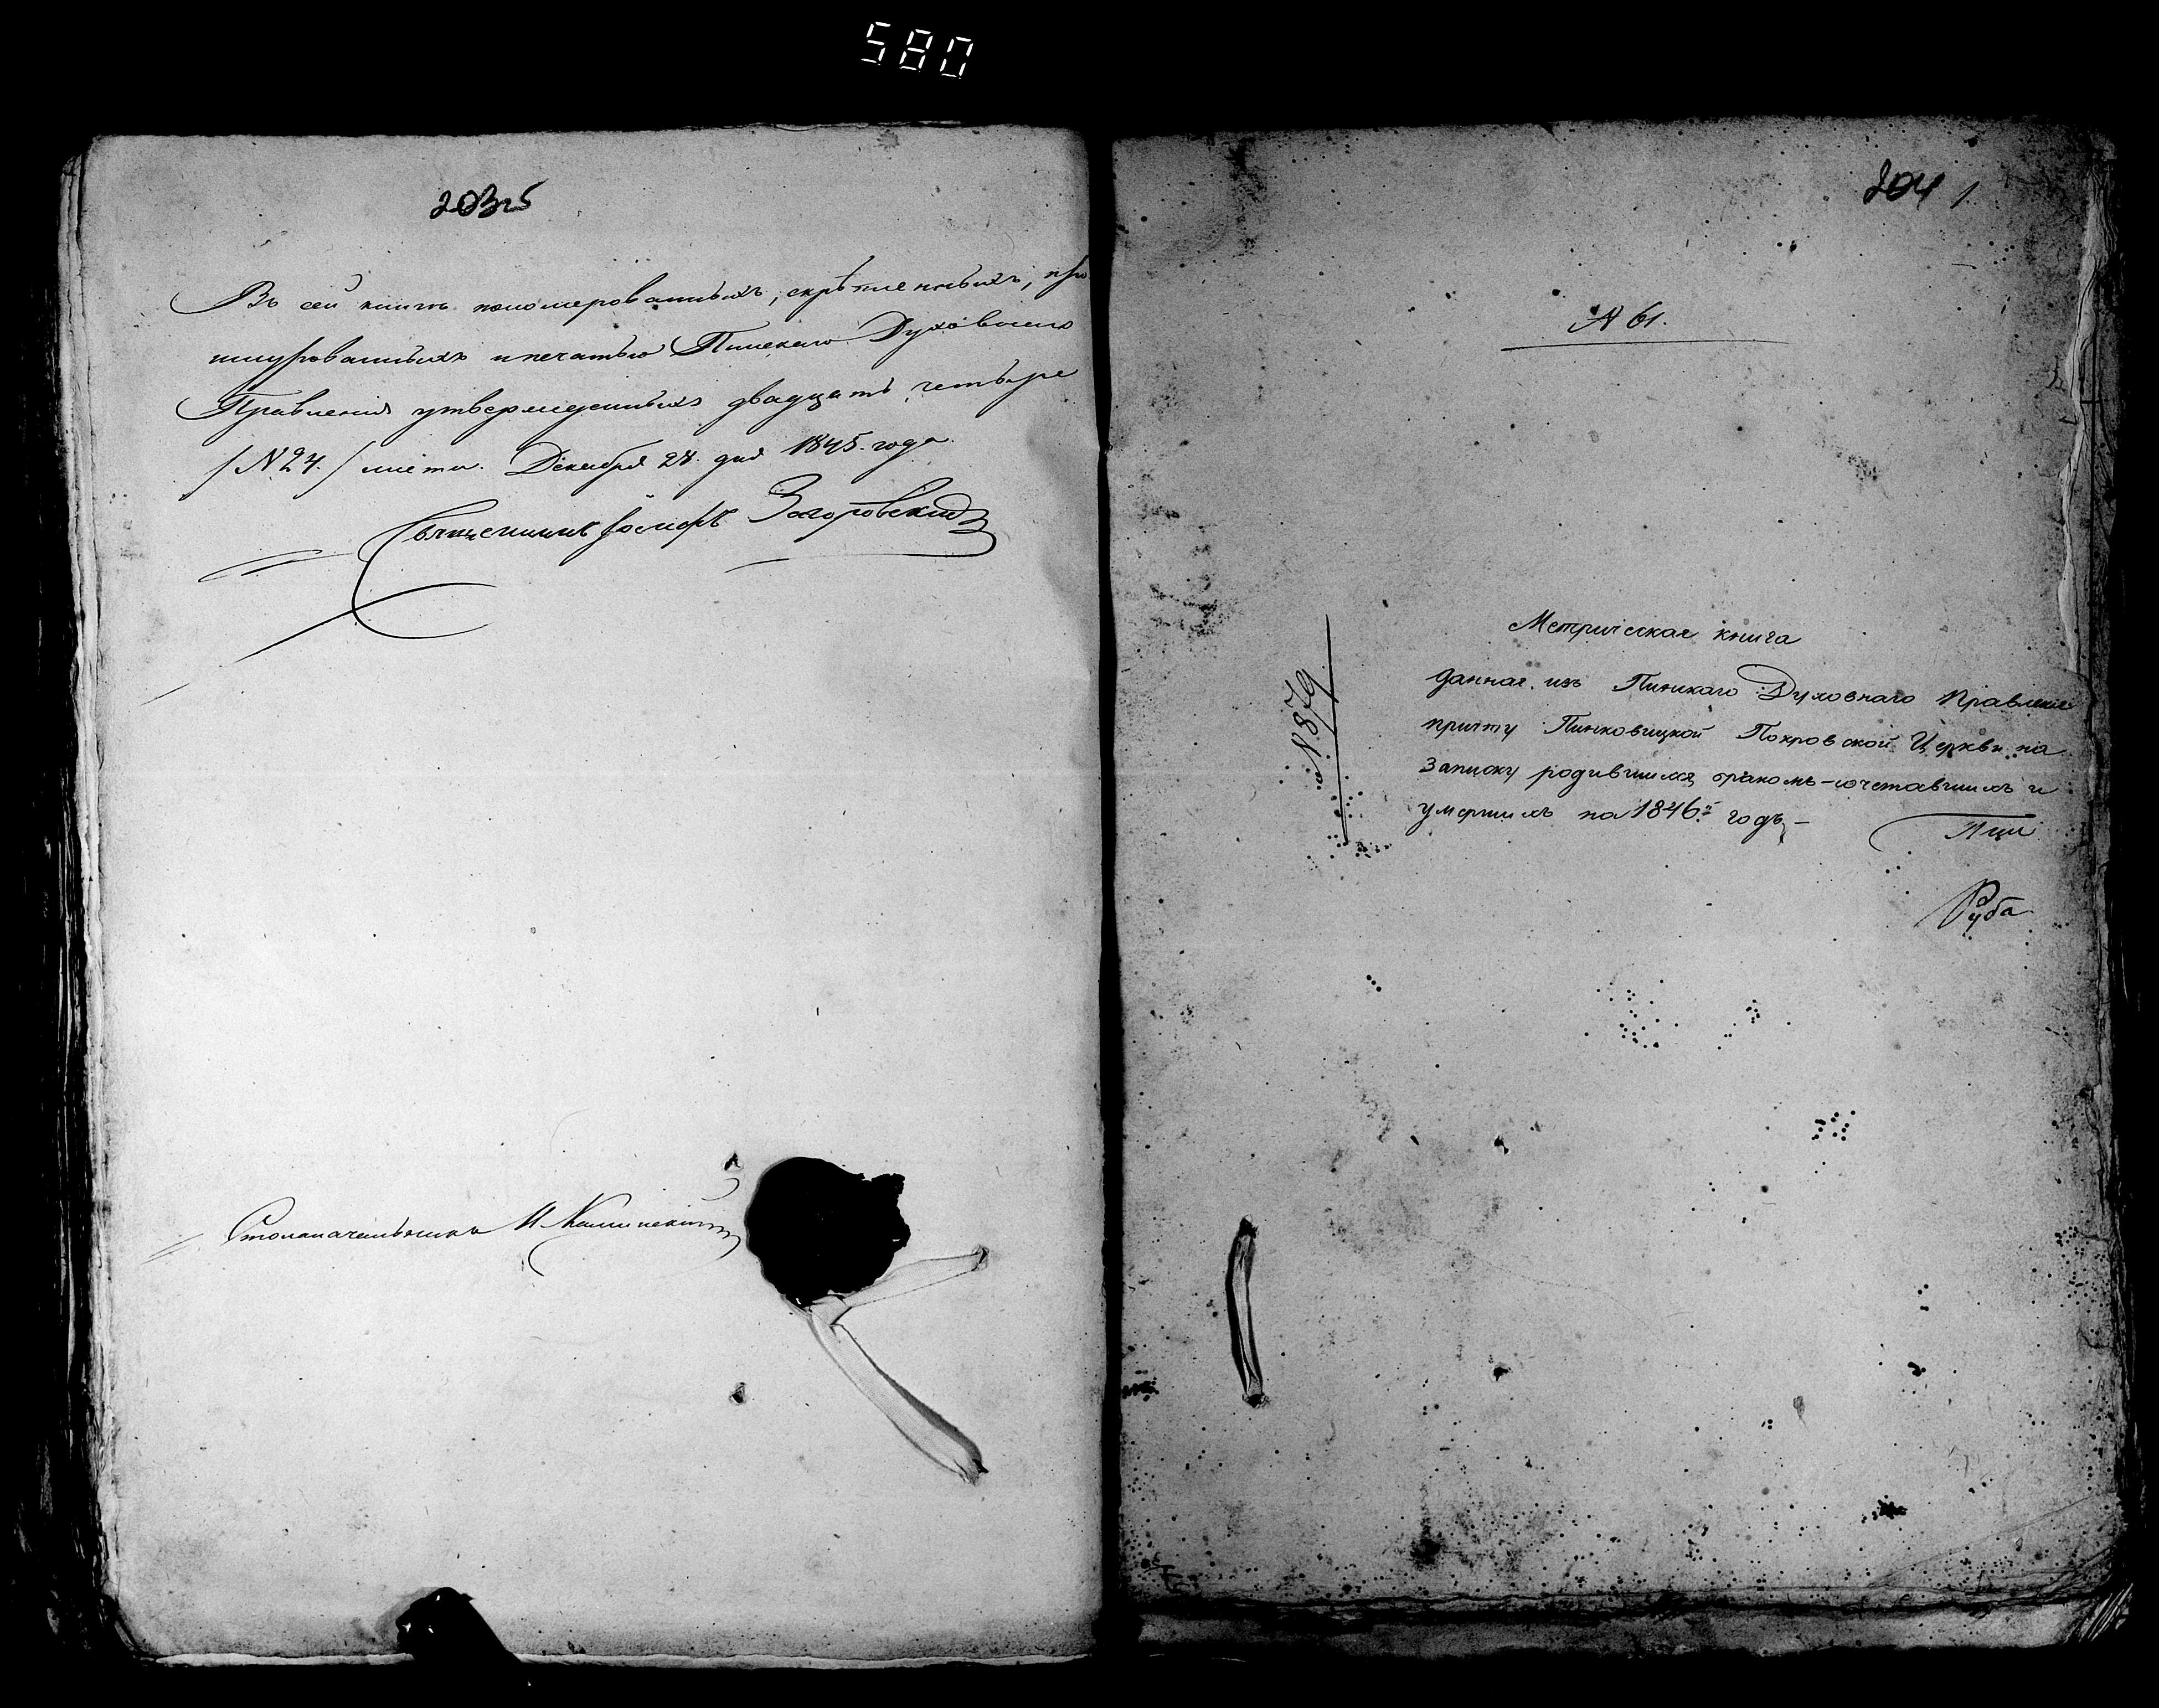 580
203об
Въ сей книгѣ пономерованныхъ, скрѣпленныхъ, про
шнурованныхъ и печатью Пинскаго Духовнаго
Правленія утвержденныхъ двадцать четыре
/№ 24./ листа. Декабря 28. дня 1845. года.
Священникъ Іосифъ Загоровскій
Столоначальникъ И Каминскій
204 1.
N 61.
N. 879
Метрическая книга
данная изъ Пинскаго Духовнаго Правленія
причту Пинковицкой Покровской Церкви на
записку родившихся, бракомъ-сочетавшихся и
умершихъ на 1846й годъ –